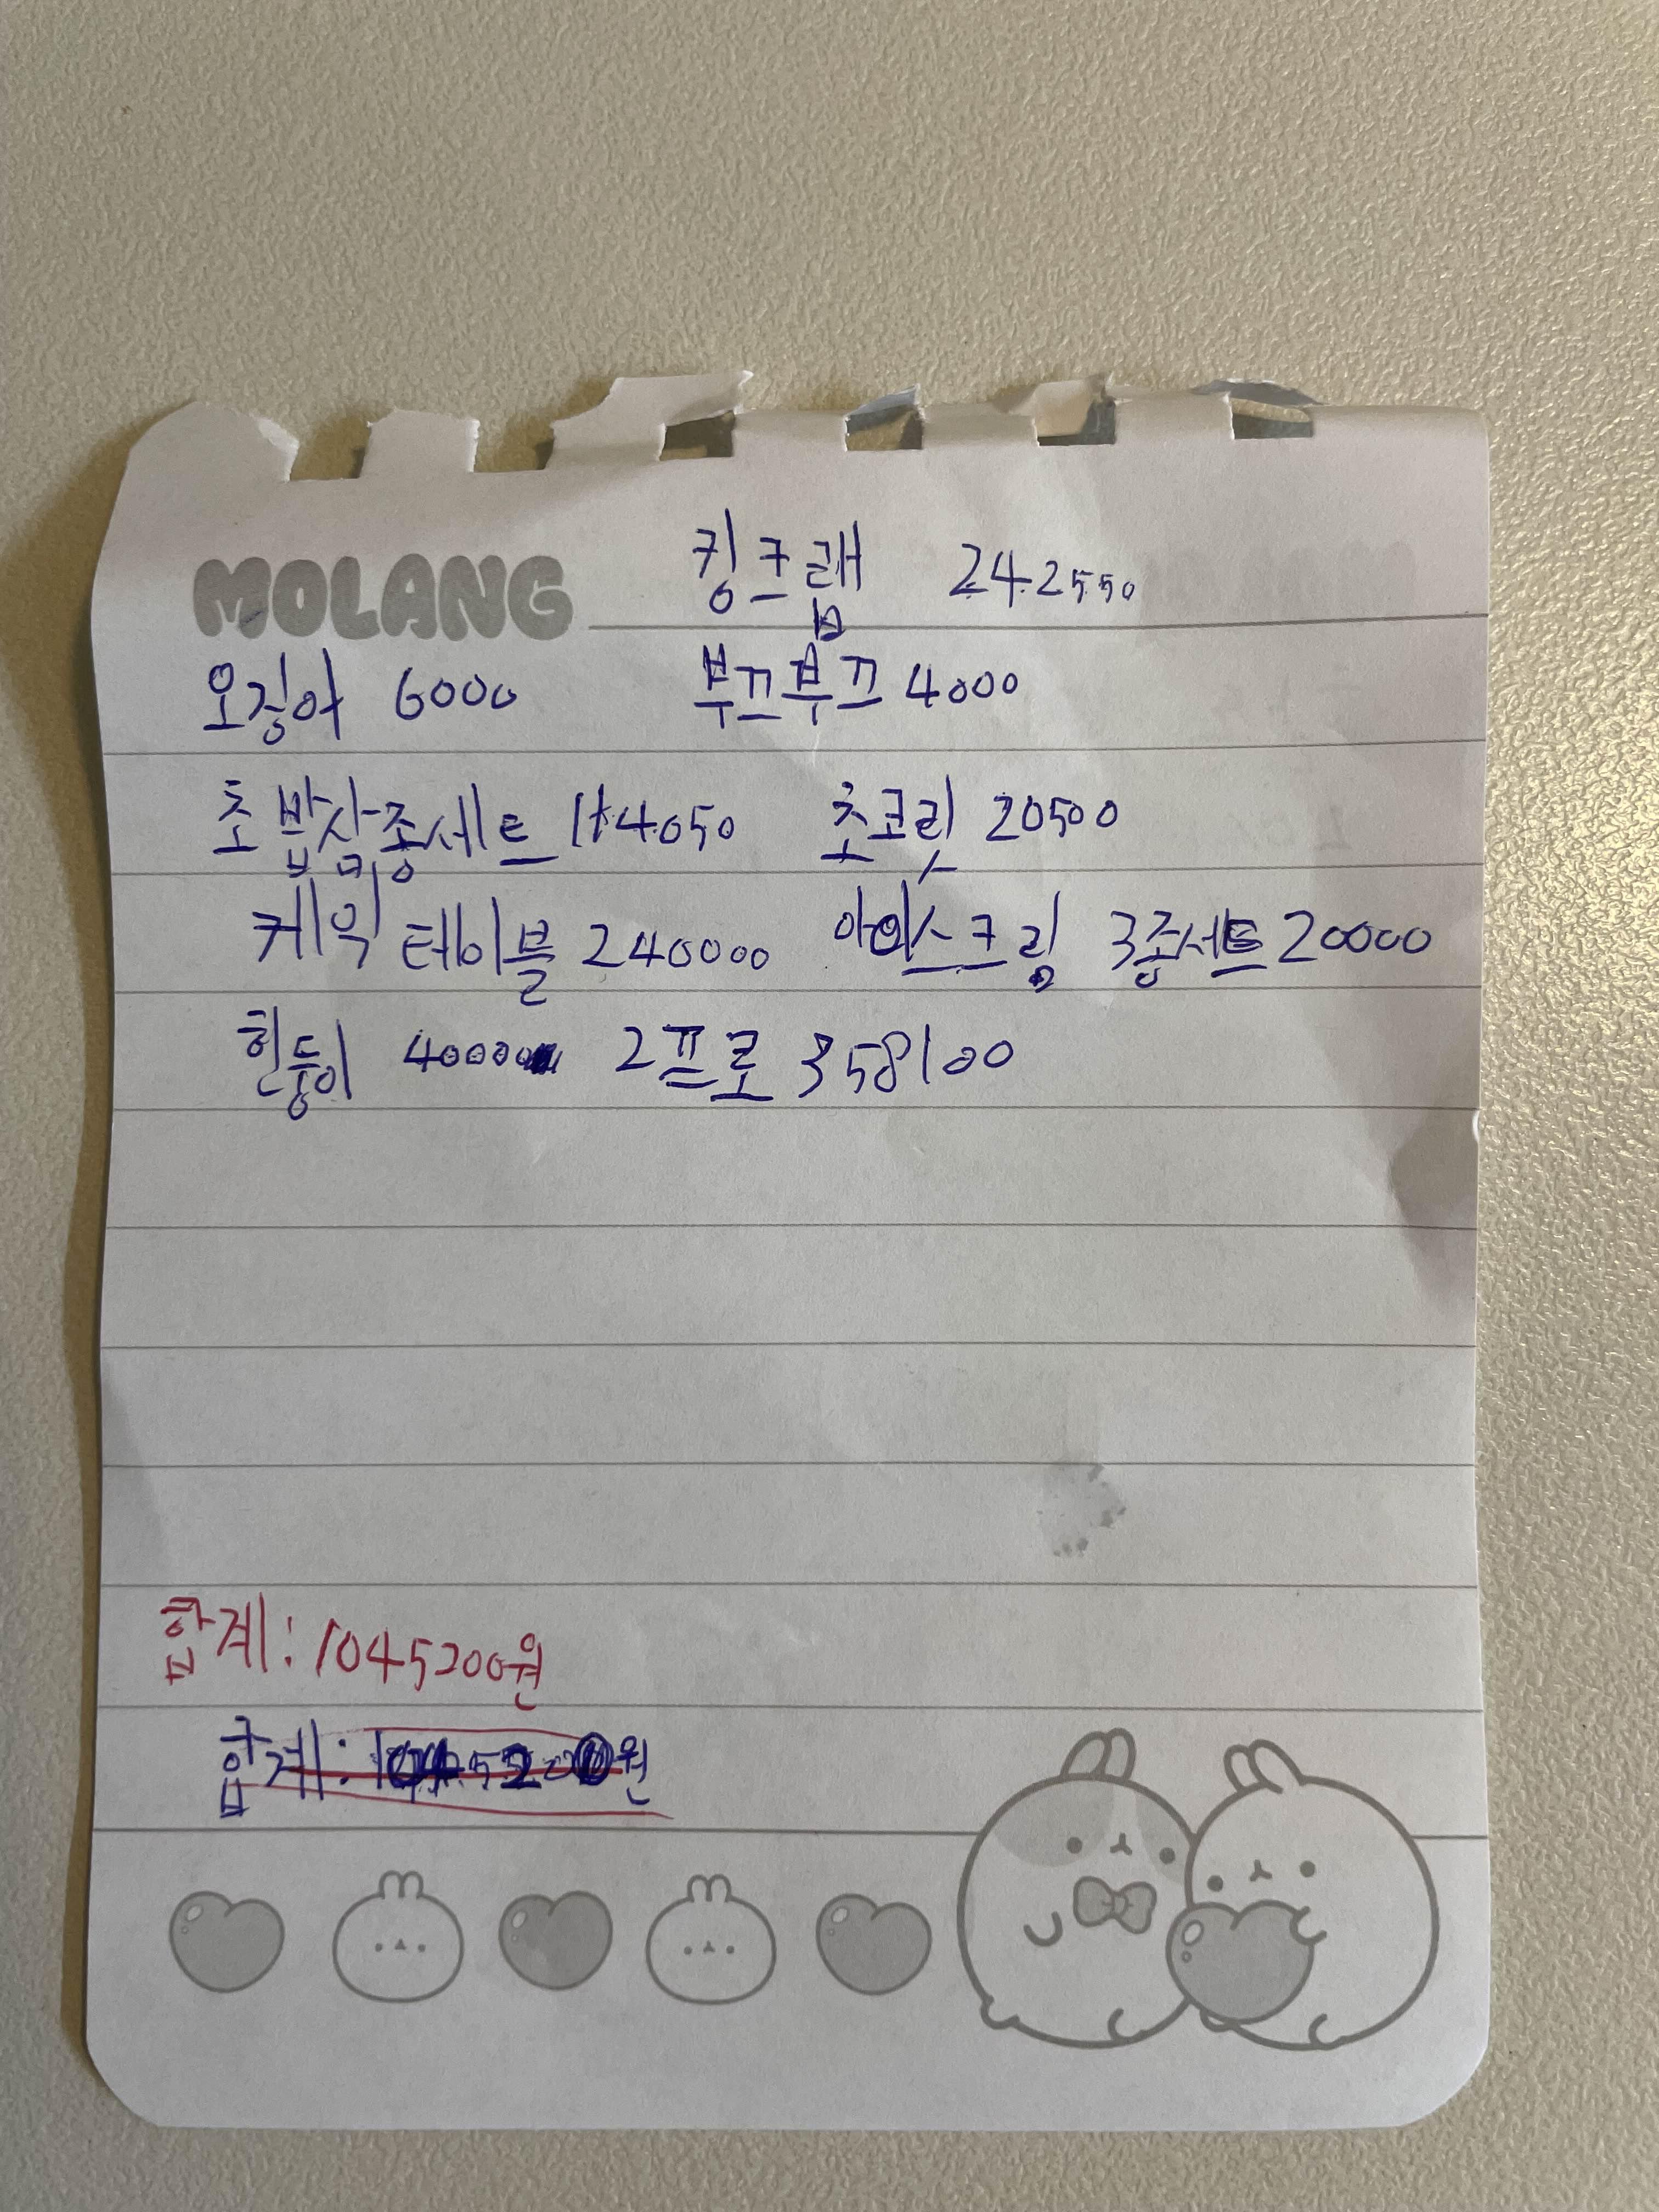 MOLANG 킹크랩 242550
오징어 6000 부끄부끄 4000
초밥삼종세트 114050 초코릿 20500
케익 테이블 240000 아이스크림 3종세트 20000
힌둥이 40000 2프로 358100
합계: 1045200원
합계: 1045200원